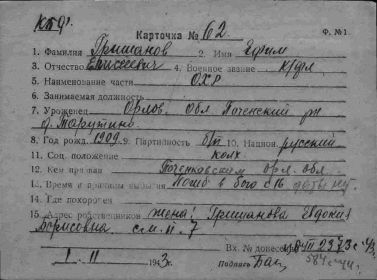 Карточка № 62
Ф. №1.
1. Фамилия Гришанов 2. Имя Ефим
3. Отчество Елисеевич 4. Военное звание к/ф
5. Наименование части ОХР
6. Занимаемая должность
7. Уроженец Орлов. обл Поченский рн
д. Тарутино
8. Год рожд. 1909 9. Партийность б/п 10. Национ. русский
11. Соц. положение колх
12. Кем призван Почепковским орл. обл.
13. Время и причины выбытия Погиб в бою с/б даты нет
14. Где похоронен
15. Адрес родственников жена: Гришанова Евдокия
Борисовна см. п. 7
Вх. № донесен
1 - II 1943 г. Подпись